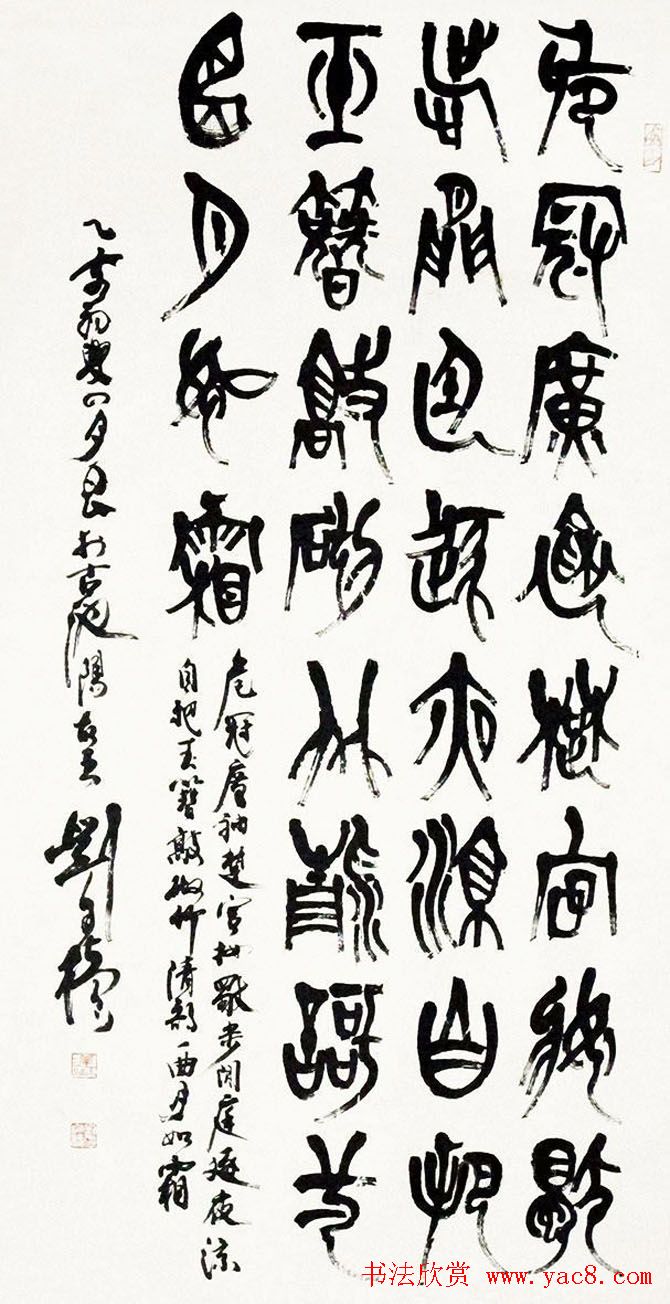 危冠廣袖楚宮妝獨
步閒庭逐夜涼自把
玉簪敲砌竹清歌一
曲月如霜
危冠廣袖楚宮妝獨步閒庭逐夜涼
自把玉簪敲砌竹清歌一曲月如霜
乙亥初夏四月於古池陽故里劉自櫝
书法欣赏 www.yac8.com